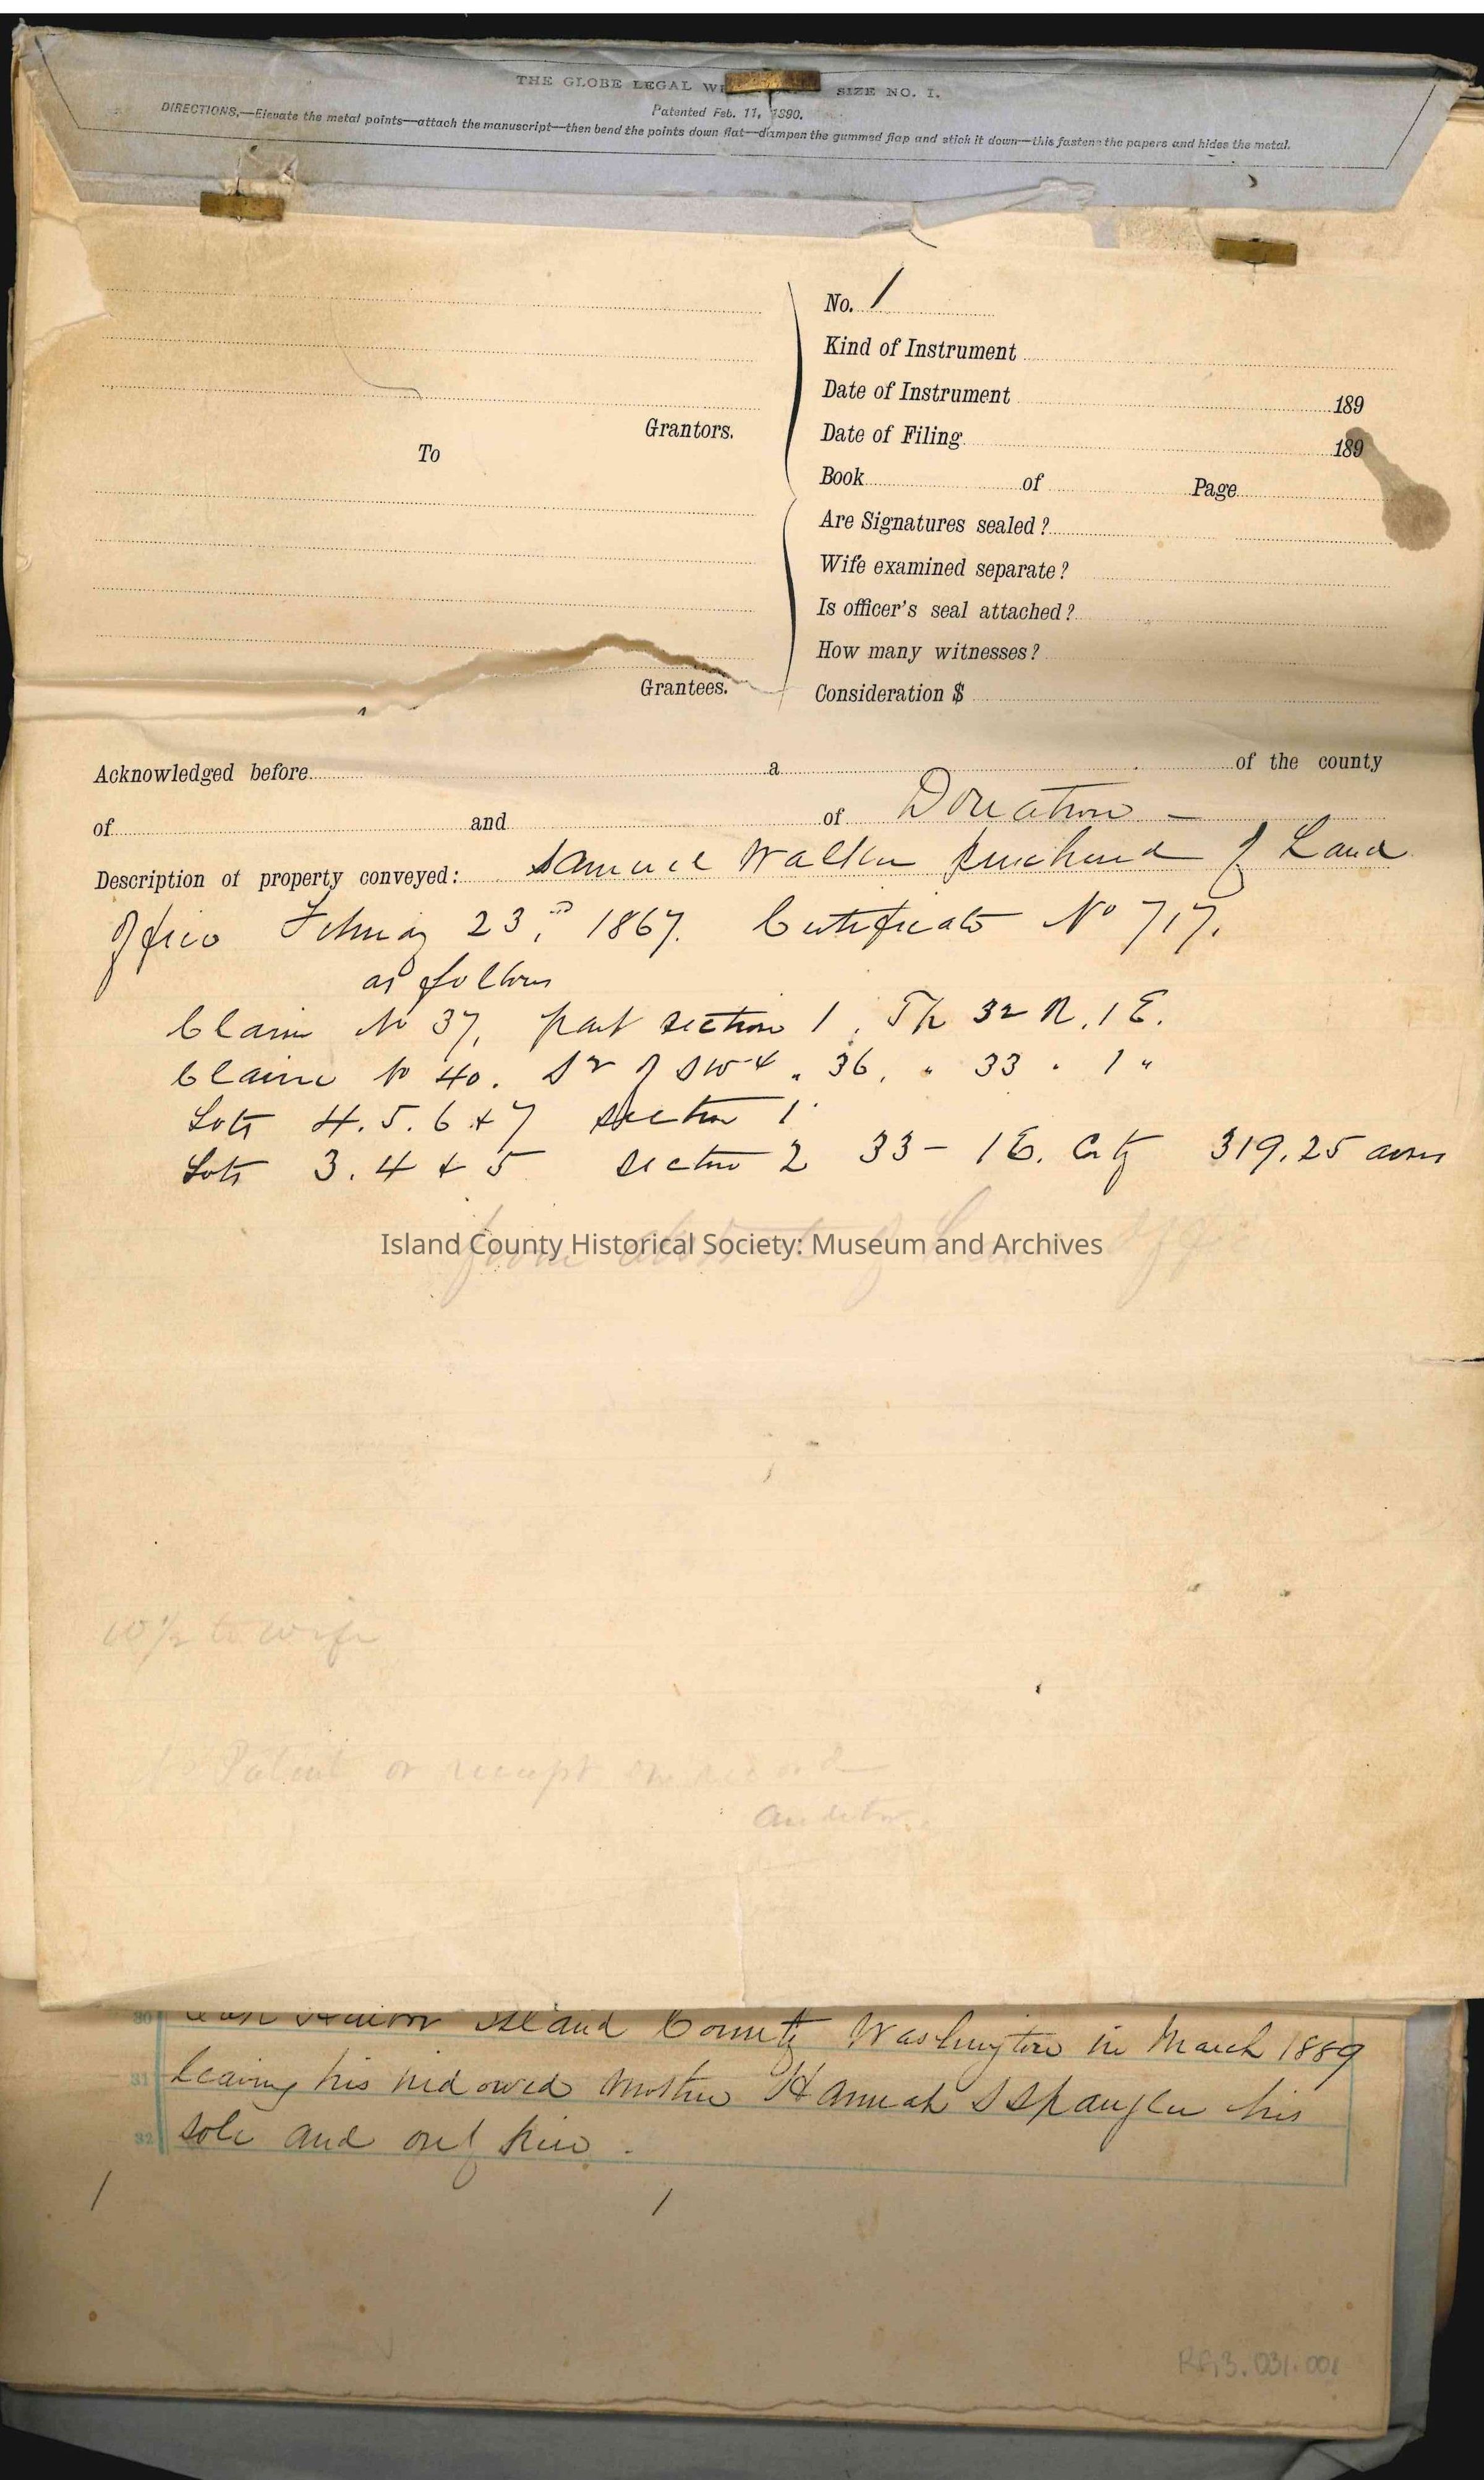 THE GLOBE LEGAL SIZE NO. 1.
Patented Feb. 11, 1890.
DIRECTIONS,—Elevate the metal points—attach the manuscript—then bend the points down flat—dampen the gummed flap and stick it down—this fastens the papers and hides the metal.
No. 1
Kind of Instrument
Date of Instrument 189
Grantors.
Date of Filing 189
To
Book of Page
Are Signatures sealed?
Wife examined separate?
Is officer's seal attached?
How many witnesses?
Grantees.
Consideration $
Acknowledged before a of the county
of and of Donation —
Description of property conveyed: Samuel Walker purchased of Land
Office February 23rd, 1867. Certificate No 717.
as follows
Claim No 37, part section 1, Tp 32 R. 1 E.
Claim No 40. of SW 4 " 36, " 33 " 1 "
Lots 4. 5. 6 & 7 section 1
Lots 3. 4 & 5 section 2 33 - 1 E. 319.25 acres
from abstract of Land Off
Island County Historical Society: Museum and Archives
W 1/2 to wife
No Patent or receipt on record
Auditor
30 Oak Harbor Island County Washington in March 1889
31 leaving his widowed mother Hannah S Spangler his
32 sole and only heir.
1 1
RG3.031.001